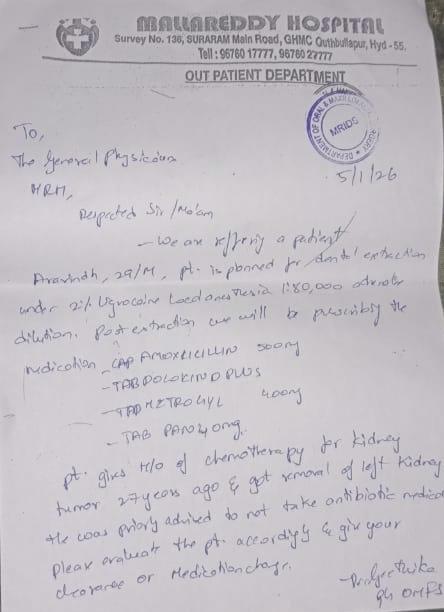 MALLAREDDY HOSPITAL
Survey No. 136, SURARAM Main Road, GHMC Quthbullapur, Hyd - 55.
Tell : 96760 17777, 96760 27777
OUT PATIENT DEPARTMENT
DEPARTMENT OF ORAL & MAXILLOFACIAL
MRIDS
5/1/26
To,
The General Physician
MRH,
Respected Sir/Ma'am
- We are reffering a patient
Aravindh, 29/M, pt. is planned for dental extraction
under 2% Lignocaine Local anesthesia 1:80,000
dilution. Post extraction we will be prescribing the
medication - CAP AMOXICILLIN 500mg
- TAB DOLOKIND PLUS
- TAB METROGYL 400mg
- TAB PAN 40mg.
pt. gives H/o of chemotherapy for kidney
tumor 27 years ago & got removal of left kidney
He was priorly advised to not take antibiotic
Please evaluate the pt. accordingly & give your
clearance or Medication change.